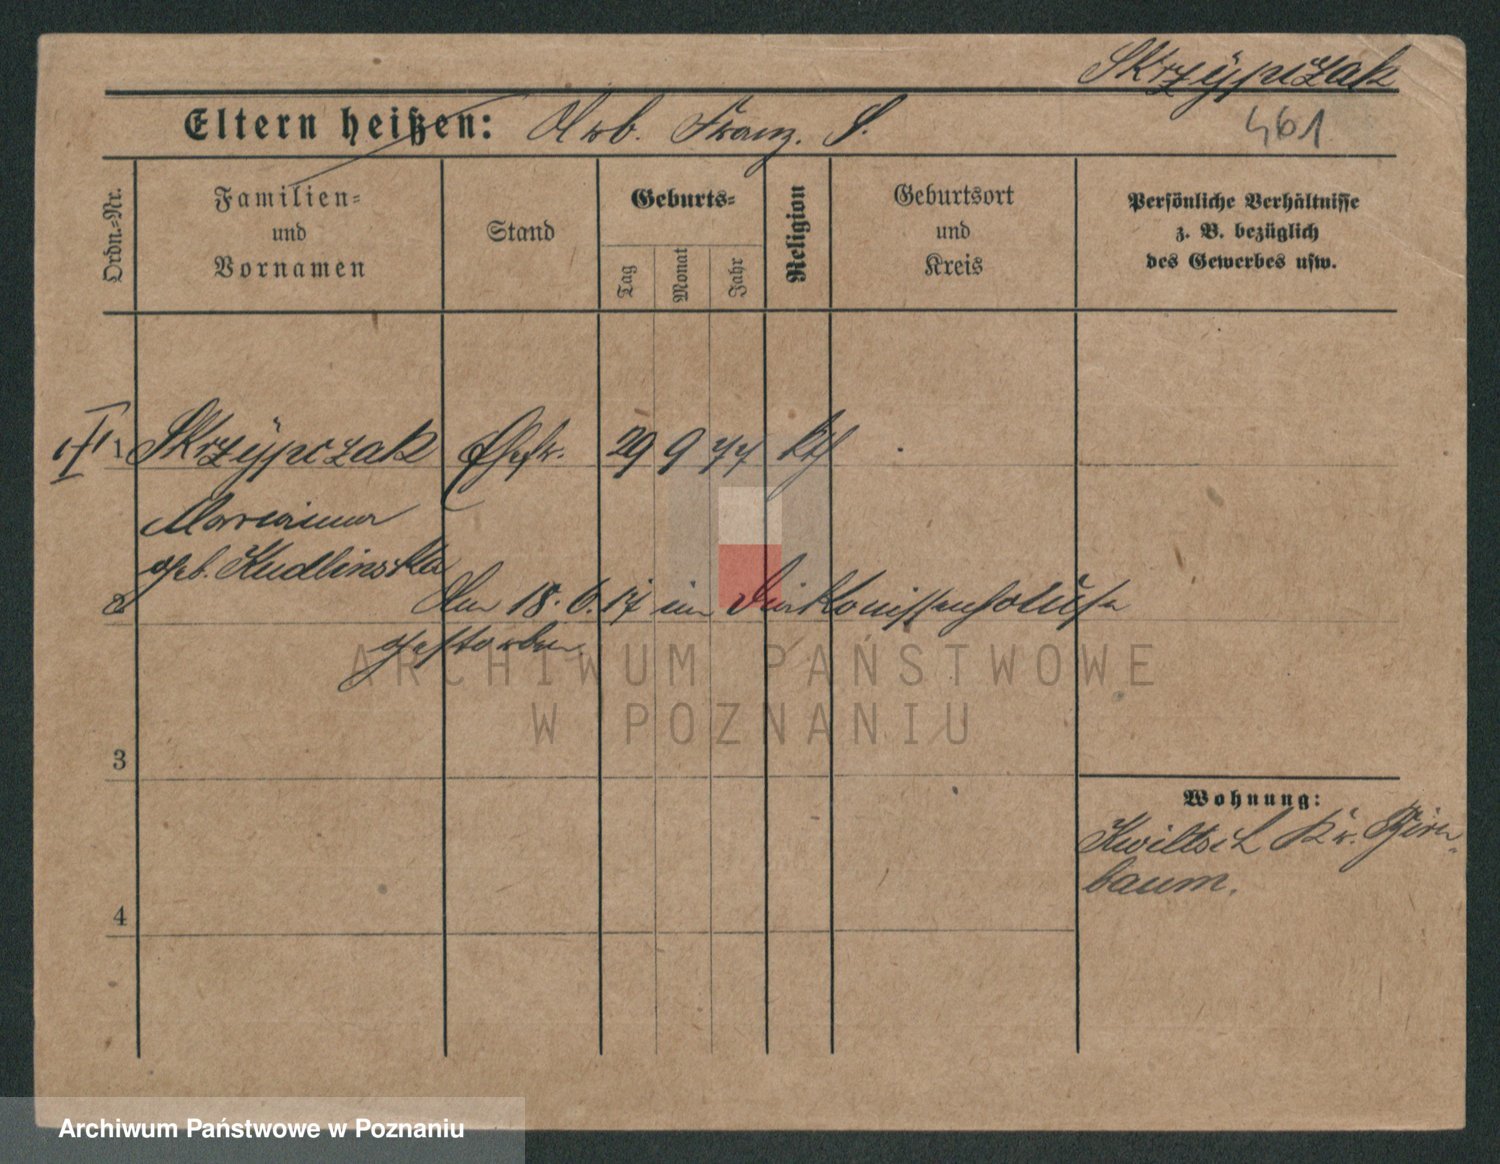 Skrzypczak
Eltern heißen: Arb. Franz. S.
461
Ordn.=Nr.
Familien=
und
Vornamen
Stand
Geburts=
Tag
Monat
Jahr
Religion
Geburtsort
und
Kreis
Persönliche Verhältnisse
z. B. bezüglich
des Gewerbes usw.
Skrzypczak Ehefr. 29 9 77 kth
Marianna
geb. Kudlinska
2
Am 18.6.17 im Diakonissenhause
gestorben
3
4
Wohnung:
Kwiltsch Kr. Birn-
baum.
ARCHIWUM PAŃSTWOWE
W POZNANIU
Archiwum Państwowe w Poznaniu